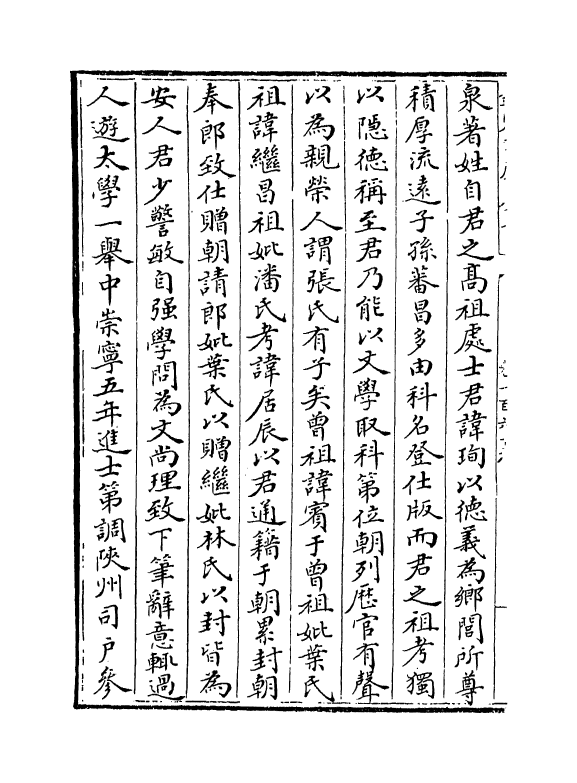 泉著姓自君之髙祖處士君諱珣以徳義為鄉閭所尊
積厚流遠子孫蕃昌多由科名登仕版而君之祖考獨
以隠徳稱至君乃能以文學取科第位朝列歴官有聲
以為親榮人謂張氏有子矣曽祖諱賓于曽祖妣葉氏
祖諱繼昌祖妣潘氏考諱居辰以君通籍于朝累封朝
奉郎致仕贈朝請郎妣葉氏以贈繼妣林氏以封皆為
安人君少警敏自强學問為文尚理致下筆辭意輒過
人遊太學一舉中崇寧五年進士第調陜州司戸參